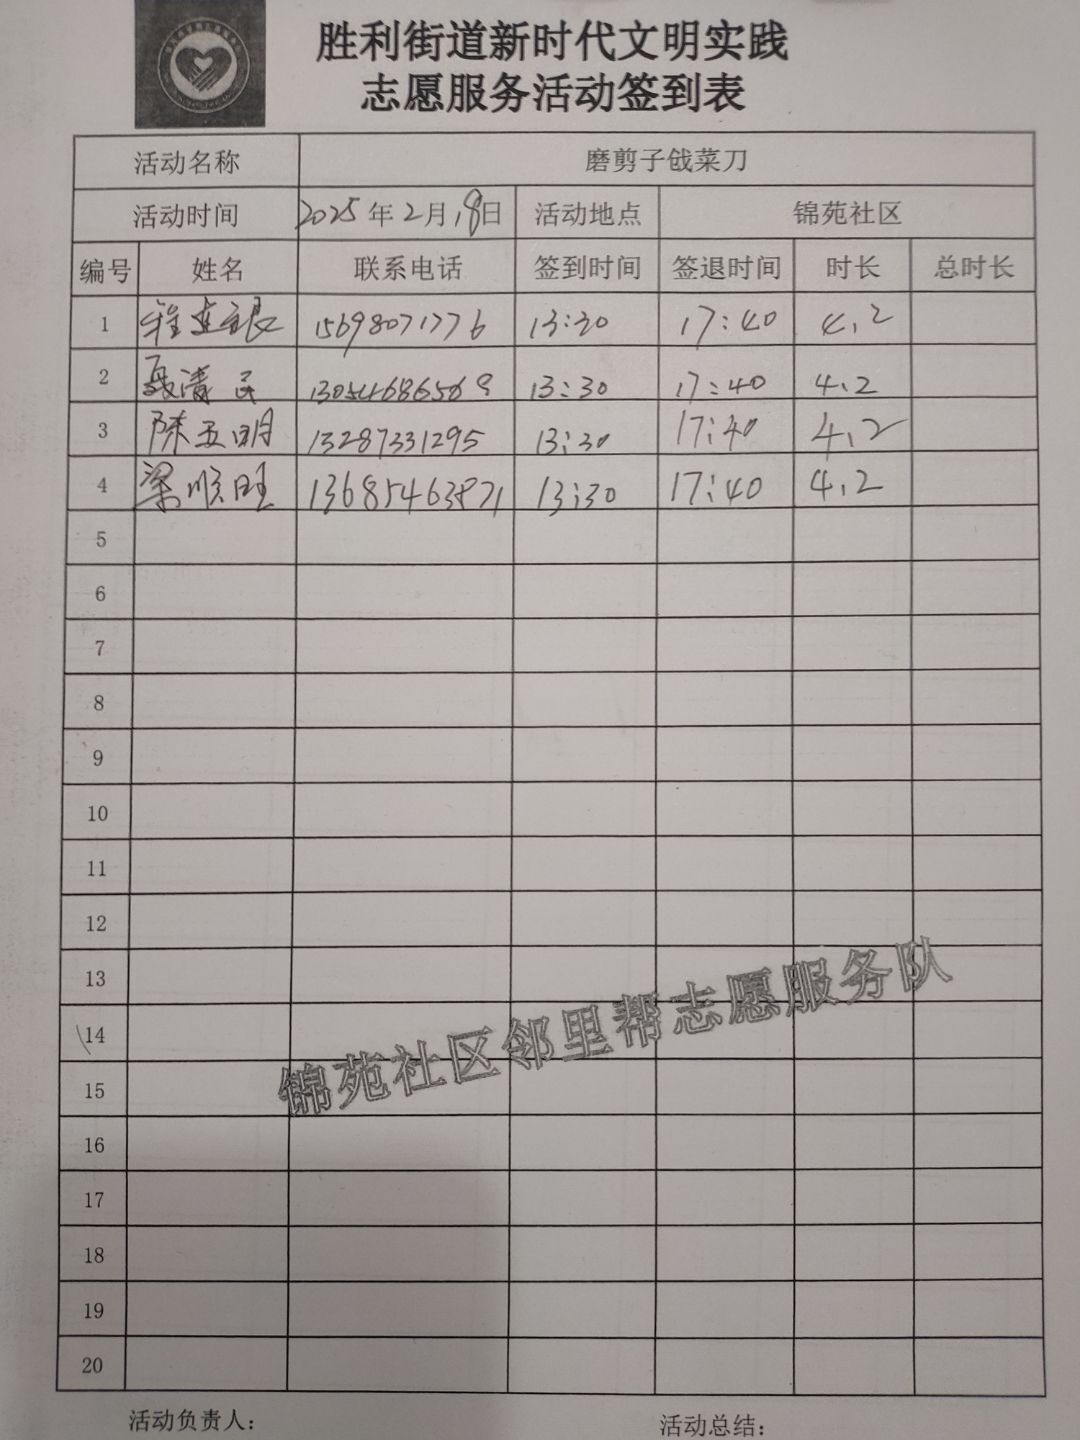 胜利街道新时代文明实践
志愿服务活动签到表
活动名称 磨剪子戗菜刀
活动时间 2025年2月18日 活动地点 锦苑社区
编号 姓名 联系电话 签到时间 签退时间 时长 总时长
1 15698071776 13:30 17:40 4.2
2 聂清民 13054686568 13:30 17:40 4.2
3 陈玉明 13287331295 13:30 17:40 4.2
4 梁顺旺 13685463871 13:30 17:40 4.2
5
6
7
8
9
10
11
12
13
14
15
锦苑社区邻里帮志愿服务队
16
17
18
19
20
活动负责人: 活动总结: